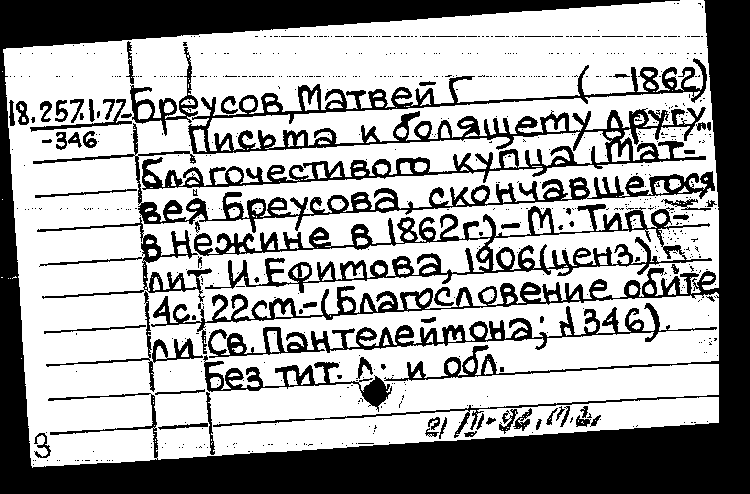 18.257.1.77- Бреусов, Матвей Г ( -1862)
-346 Письма к болящему другу...
благочестивого купца (Мат-
вея Бреусова, скончавшегося
в Нежине в 1862г.).- М.: Типо-
лит. И. Ефимова, 1906 (ценз.).-
4с.; 22см.-(Благословение обите
ли Св. Пантелеймона; №346).
Без тит. л. и обл.
3